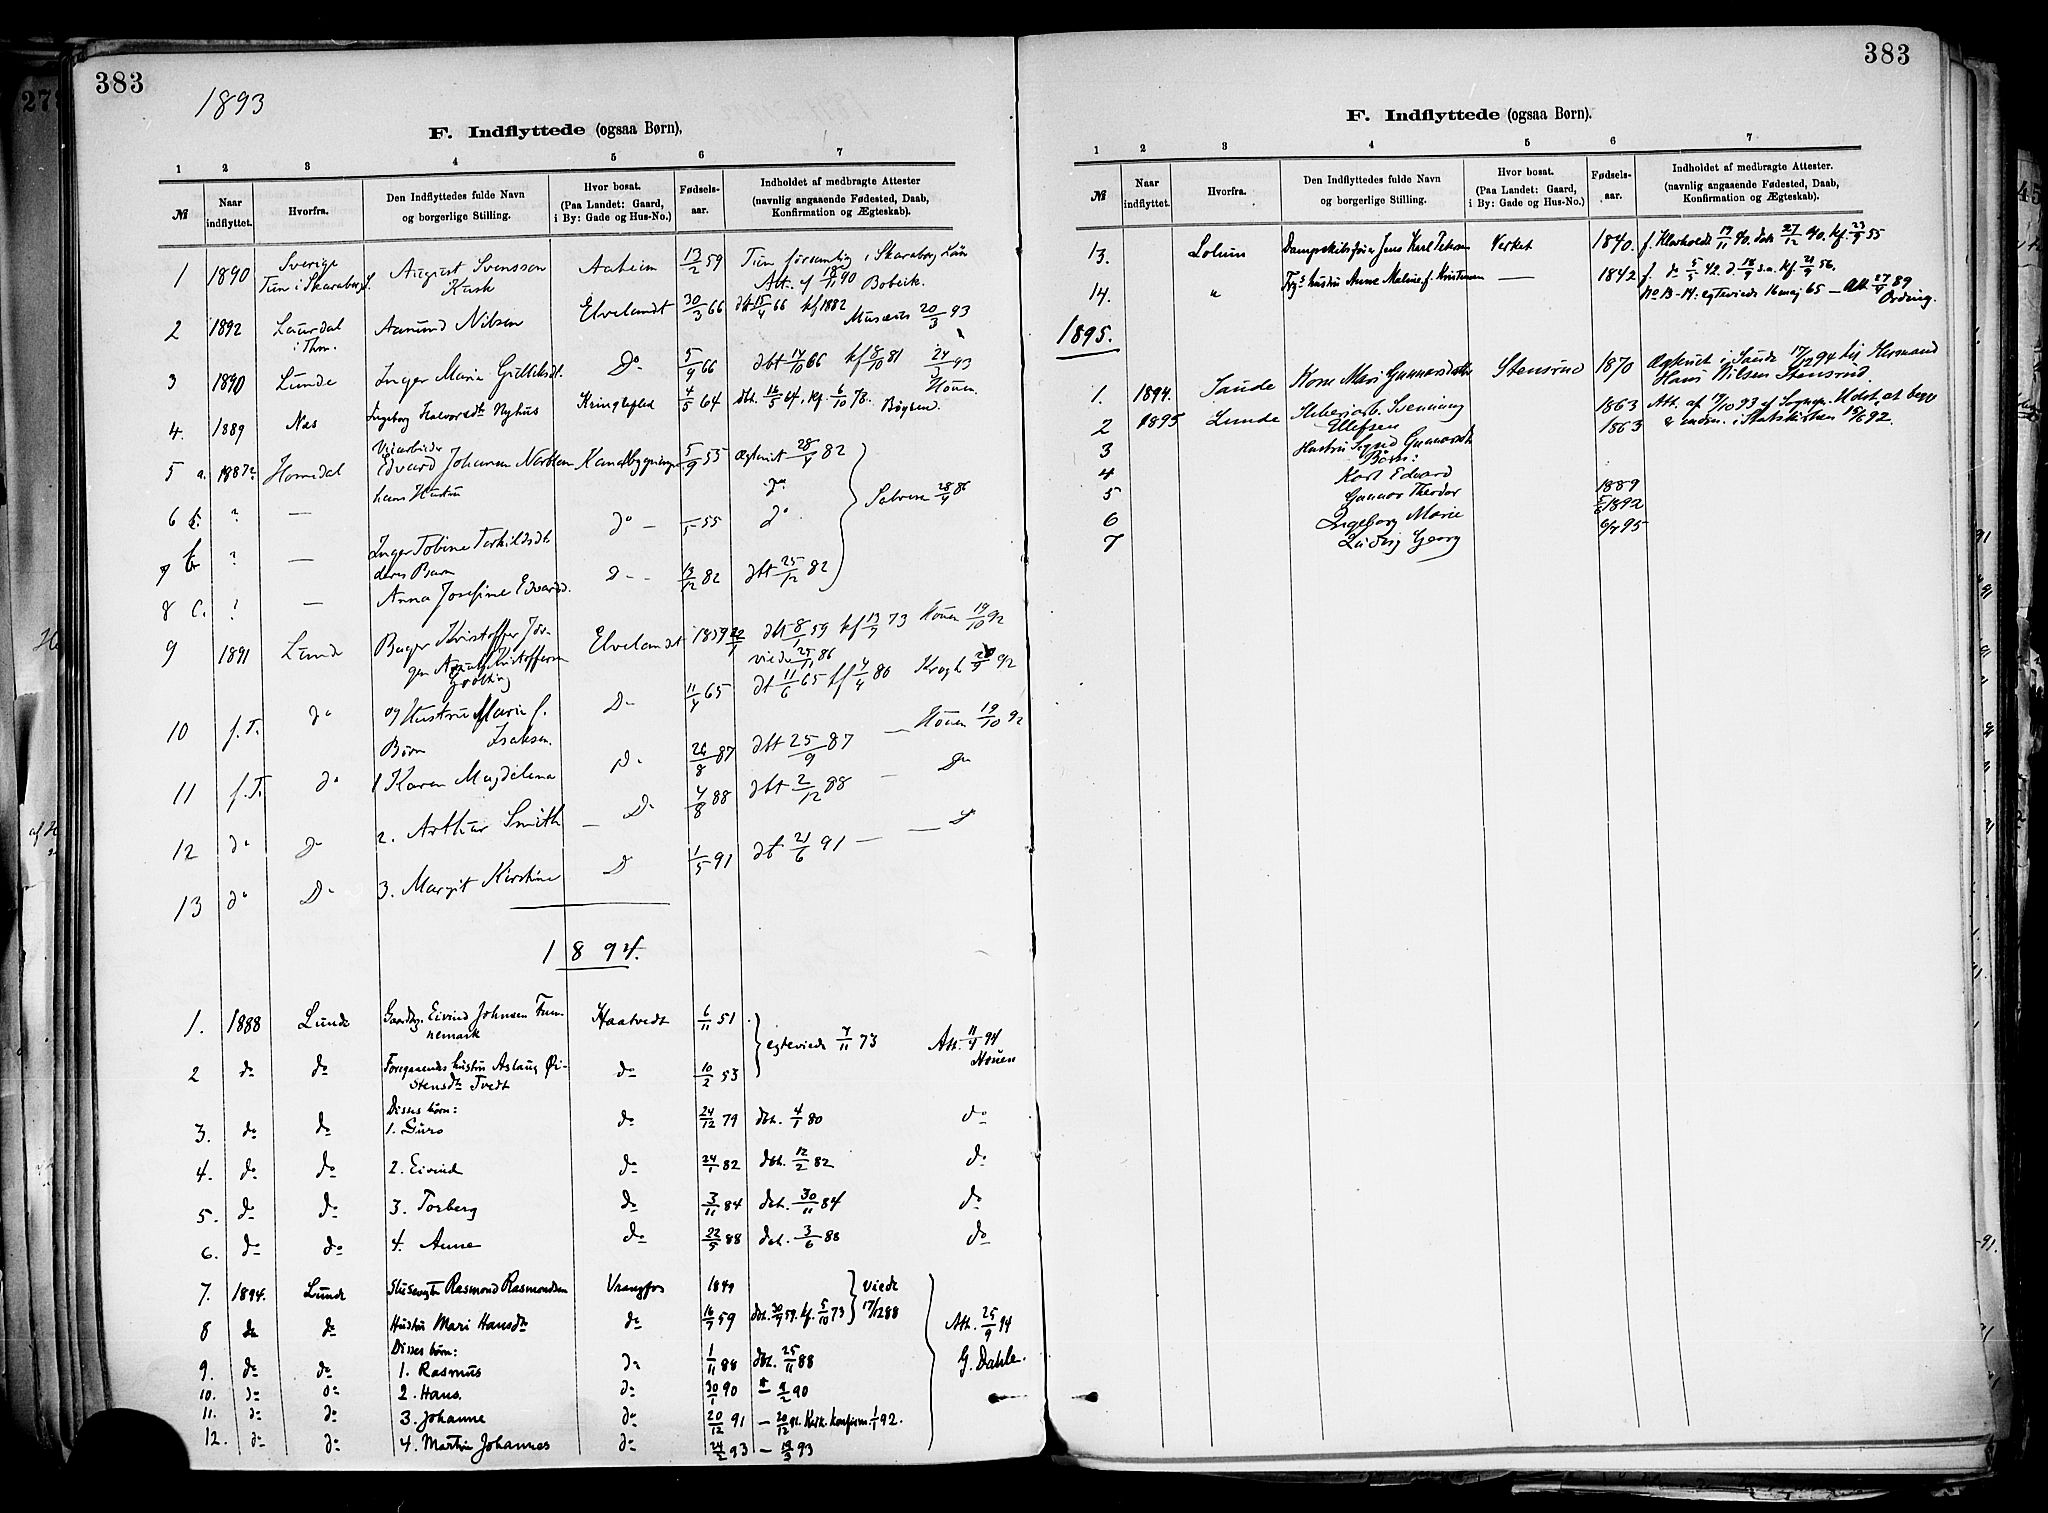 383
1893
F. Indflyttede (ogsaa Børn),
1 2 3 4 5 6 7
№ Naar indflyttet. Hvorfra. Den Indflyttedes fulde Navn og borgerlige Stilling. Hvor bosat. (Paa Landet: Gaard, i By: Gade og Hus-No.) Fødsels-aar. Indholdet af medbragte Attester (navnlig angaaende Fødested, Daab, Konfirmation og Ægteskab).
1 1890 Sverige Tun i Skaraborg August Svensson Kusk Aaheim 13/2 59 Tun församling i Skaraborg Län Att. af 18/11 90 Bobeck.
2 1892 Laurdal i Thm. Aanund Nilsen Elvelandt 30/3 66 dbt 15/4 66 kf 1882 20/3 93
3 1890 Lunde Inger Marie Gulleksdt. Do 5/9 66 dbt 14/10 66 kf 8/10 81 24/3 93 Houen.
4. 1889 Næs Ingeborg Halvorsdtr Nyhus Kringlefled 4/5 64 dbt. 16/5 64, kf. 6/10 78.
5 a. 1887 Homedal Edvard Johansen Kanalbygningen 5/9 55 Ægteviet 28/4 82
6 ? — hans Hustru do — /5 55 do
7 b ? — Inger Tobine Terkildsdt.
deres Barn D- - 13/12 82 dbt 25/12 82
8 C. ? — Anna Josefine Edvardsd.
9 1891 Lunde Bager Kristoffer Jør-
gen Kristoffersen Elvelandt 1859 dbt 8/1 59 kf 13/9 73 Houen 19/10 92
viede 25/11 86
10 f.T. do og Hustru Marie f. Isaksen. D- 11/4 65 dt 11/6 65 kf 4/4 80 Krogh 92
Børn
11 f.T. do 1 Karen Magdelena D- 26/8 87 dbt 25/9 87 — Houen 19/10 92
12 do do 2. Arthur Smith — D- 4/8 88 dbt 2/12 88 — Do
13 do Do 3. Margit Kirstine D 1/5 91 dbt. 21/6 91 —
1894.
1. 1888 Lunde Gaardbr. Eivind Johnsen Tun-
nemark Haatvedt 6/11 51 egteviede 7/11 73 Att. 11/4 94 Houen
2 do do Foregaaendes hustru Aslaug Øi-
stensdtr Tvedt do 10/2 53
Disses børn:
3. do do 1. Guro do 24/12 79 dbt. 4/1 80 do
4. do do 2. Eivind do 24/1 82 dbt. 12/2 82 do
5. do do 3. Torberg do 3/11 84 dbt. 30/11 84 do
6. do do 4. Anne do 22/5 88 dbt. 3/6 88 do
7. 1894. Lunde Slusevogter Rasmond Rasmondsen Vrangfos 1849 viede 17/12 88
8 do do Hustru Mari Hansdtr do 16/7 59 dbt. 30/9 59. kf. 5/10 73 Att. 25/9 94
Disses børn:
9. do do 1. Rasmus do 1/11 88 dbt. 25/11 88 G. Dahle.
10. do do 2. Hans. do 30/1 90 9/2 90
11. do do 3. Johanne do 20/12 91 — 20/12 91. konfirm. 1/1 92.
12. do do 4. Martin Johannes do 24/2 93 — 19/3 93
383
F. Indflyttede (ogsaa Børn).
1 2 3 4 5 6 7
№ Naar indflyttet. Hvorfra. Den Indflyttedes fulde Navn og borgerlige Stilling. Hvor bosat. (Paa Landet: Gaard, i By: Gade og Hus-No.) Fødsels-aar. Indholdet af medbragte Attester. (navnlig angaaende Fødested, Daab, Konfirmation og Ægteskab).
13. Dampskibsfører Jens Karl Petersen Verket 1840. 19/11 40. døbt 27/12 40. kf. 23/9 55
14. " hustru Anne Maline f. Kristensen — 1842 f. do 5/5 42. d. 18/9 s.a. kf. 21/9 56.
No 13-14: egteviede 16 maj 65 — Att 27/4 89
1895.
1. 1894. Saude Mari Gunnarsdatter Stensrud 1870 Ægteviet i Saude 17/12 94 til Hermand Hans Nilsen Stensrud.
2 1895 Lunde Svenning Ellefsen 1863 Att. af 17/10 93 af Sognep. Holst, at begge
3 Hustru Sigrid Gunnarsdtr 1863 i Statskirken 92.
Børn:
4 Karl Edvard
5 Gunnar Theodor 1889
6 Ingeborg Marie 1892
7 Ludvig Georg 95